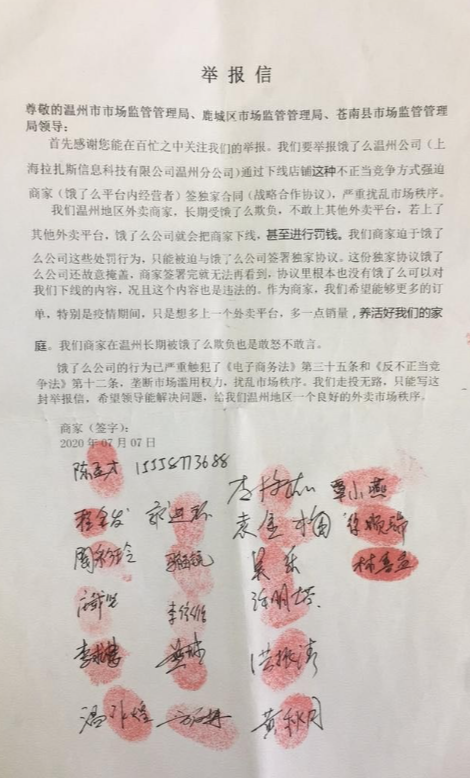 举报信
尊敬的温州市市场监管管理局、鹿城区市场监管管理局、苍南县市场监管管理
局领导：
首先感谢您能在百忙之中关注我们的举报。我们要举报饿了么温州公司（上
海拉扎斯信息科技有限公司温州分公司）通过下线店铺这种不正当竞争方式强迫
商家（饿了么平台内经营者）签独家合同（战略合作协议），严重扰乱市场秩序。
我们温州地区外卖商家，长期受饿了么欺负，不敢上其他外卖平台，若上了
其他外卖平台，饿了么公司就会把商家下线，甚至进行罚钱。我们商家迫于饿了
么公司这些处罚行为，只能被迫与饿了么公司签署独家协议。这份独家协议饿了
么公司还故意掩盖，商家签署完就无法再看到，协议里根本也没有饿了么可以对
我们下线的内容，况且这个内容也是违法的。作为商家，我们希望能够更多的订
单，特别是疫情期间，只是想多上一个外卖平台，多一点销量，养活好我们的家
庭。我们商家在温州长期被饿了么欺负也是敢怒不敢言。
饿了么公司的行为已严重触犯了《电子商务法》第三十五条和《反不正当竞
争法》第十二条，垄断市场滥用权力，扰乱市场秩序。我们走投无路，只能写这
封举报信，希望领导能解决问题，给我们温州地区一个良好的外卖市场秩序。
商家（签字）：
2020年07月07日
15558773688
覃小燕
袁金梅 徐顺瑞
林喜孟
吴乐
洪振涛
黄秋月